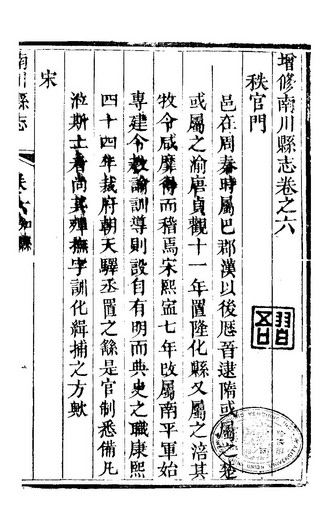 增修南川縣志卷之六
秩官門
邑在周秦時屬巴郡漢以後歷晉逮隋或屬之楚
或屬之渝唐貞觀十一年置隆化縣又屬之涪其
牧令咸靡得而稽焉宋熙寧七年改屬南平軍始
專建令教諭訓導則設自有明而典史之職康熙
四十四年裁府朝天驛丞置之餘是官制悉備凡
涖斯土者尚其殫撫字訓化緝捕之方歟
宋
南川縣志
卷六
知縣